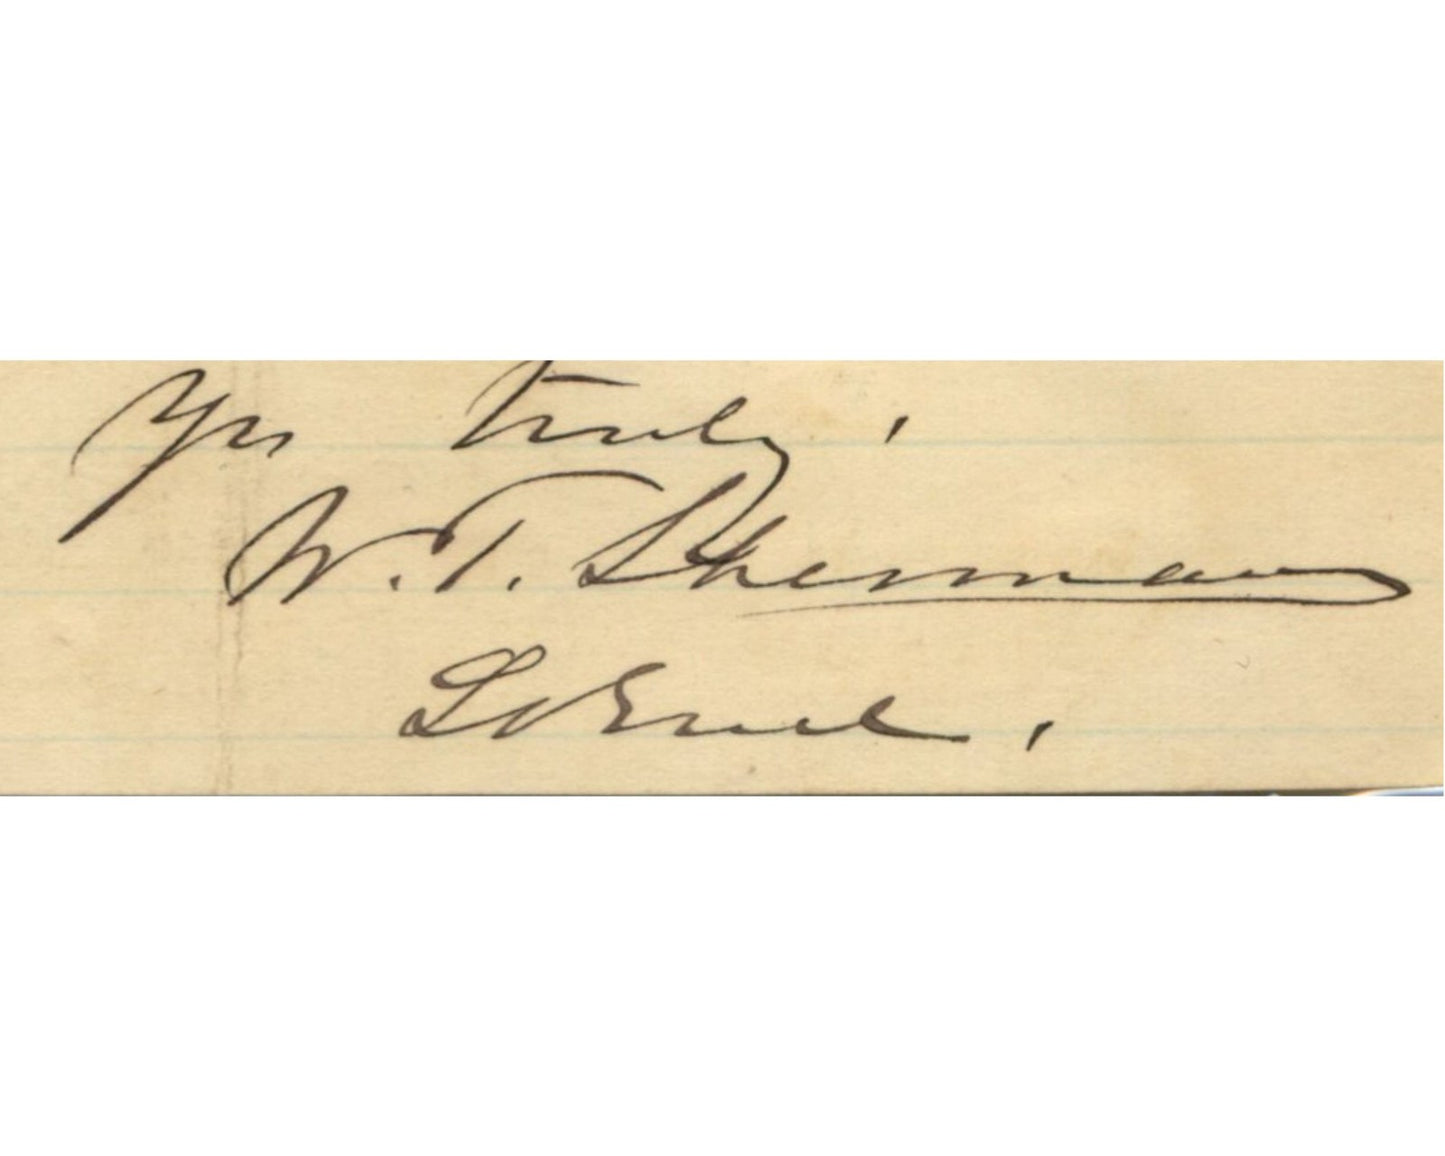 Yrs truly,
W. T. Sherman
Lt Genl.